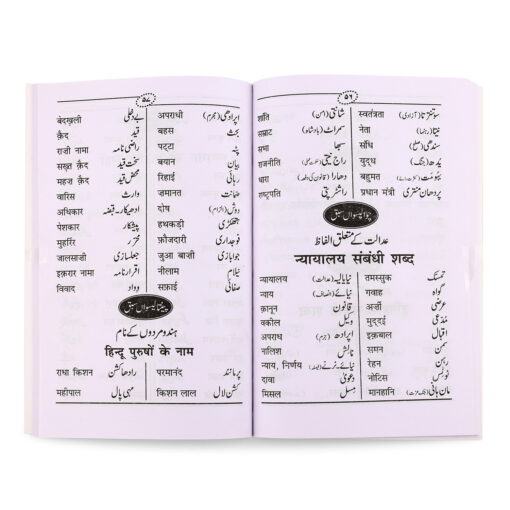 ۵۶
शांति شانتی (امن) स्वतंत्रता سوتنترتا (آزادی)
सम्राट سمراٹ (بادشاہ) नेता نیتا (رہنما)
सभा سبھا संधि سندھی (صلح)
राजनीति راج نیتی युद्ध یدھ (جنگ)
धारा دھارا बहुमत بہومت
राष्ट्रपति راشٹرپتی प्रधान मंत्री پردھان منتری
چوالیسواں سبق
عدالت کے متعلق الفاظ
न्यायालय संबंधी शब्द
न्यायालय نیایالیہ (عدالت) तमस्सुक تمسک
न्याय نیائے (انصاف) गवाह گواہ
क़ानून قانون अर्ज़ी عرضی
वकील وکیل मुद्दई مدعی
अपराध اپرادھ (جرم) इक़बाल اقبال
नालिश نالش समन سمن
न्याय, निर्णय نیائے۔ نرنے रेहन رہن
दावा دعویٰ नोटिस نوٹس
मिसल مسل मानहानि مان ہانی (ہتک عزت)
۵۷
बेदखली بے دخلی अपराधी اپرادھی (مجرم)
क़ैद قید बहस بحث
राजी नामा راضی نامہ पट्टा پٹہ
सख़्त क़ैद سخت قید बयान بیان
महज क़ैद محض قید रिहाई رہائی
वारिस وارث ज़मानत ضمانت
अधिकार ادھیکار۔ قبضہ दोष دوش (الزام)
पेशकार پیشکار हथकड़ी ہتھکڑی
मुहर्रिर محرر फ़ौजदारी فوجداری
जालसाजी جعلسازی जुआ बाजी جوا بازی
इक़रार नामा اقرار نامہ नीलाम نیلام
विवाद وواد सफ़ाई صفائی
پینتالیسواں سبق
ہندو مردوں کے نام
हिन्दू पुरुषों के नाम
राधा किशन رادھا کشن परमानंद پرمانند
महीपाल مہی پال किशन लाल کشن لال